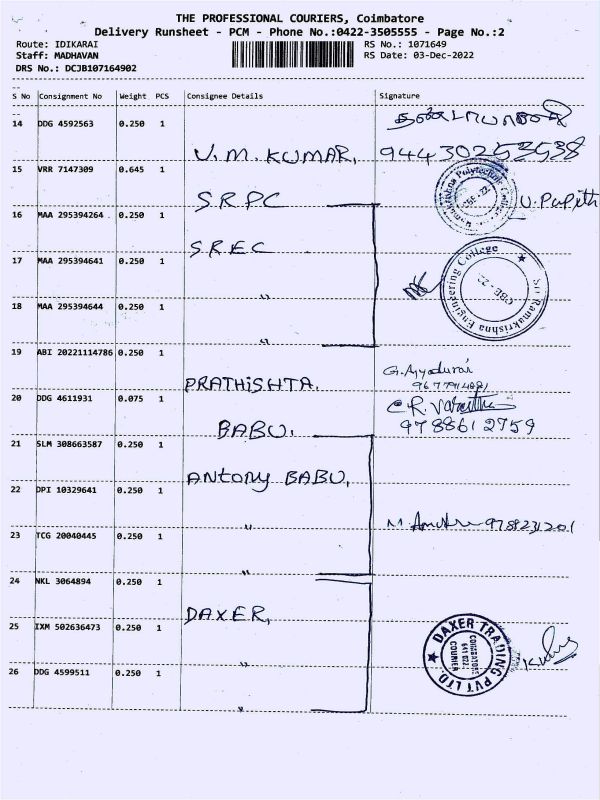 THE PROFESSIONAL COURIERS, Coimbatore
Delivery Runsheet - PCM - Phone No.:0422-3505555 - Page No.:2
Route: IDIKARAI RS No.: 1071649
Staff: MADHAVAN RS Date: 03-Dec-2022
DRS No.: DCJB107164902
S No Consignment No Weight PCS Consignee Details Signature
14 DDG 4592563 0.250 1
V.M. KUMAR, 94430253538
15 VRR 7147309 0.645 1
S.R.P.C
16 MAA 295394264 0.250 1
S.R.E.C
17 MAA 295394641 0.250 1
Sri Ramakrishna Engineering College
CBE - 22
18 MAA 295394644 0.250 1
19 ABI 20221114786 0.250 1
PRATHISHTA. G. Ayyadurai
20 DDG 4611931 0.075 1
BABU. 9788612759
21 SLM 308663587 0.250 1
ANtony BABU,
22 DPI 10329641 0.250 1
23 TCG 20040445 0.250 1
24 NKL 3064894 0.250 1
DAXER,
25 IXM 502636473 0.250 1
DAXER TRADING PVT LTD.
26 DDG 4599511 0.250 1